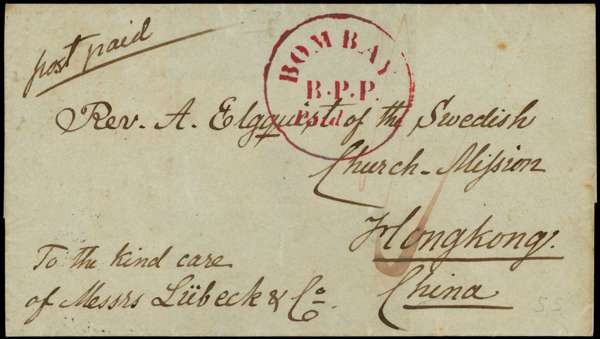 post paid
BOMBAY
B.P.P.
Paid
Rev. A. Elgquist of the Swedish
Church-Mission
Hongkong.
China
To the kind care
of Messrs Lübeck & Co.
55